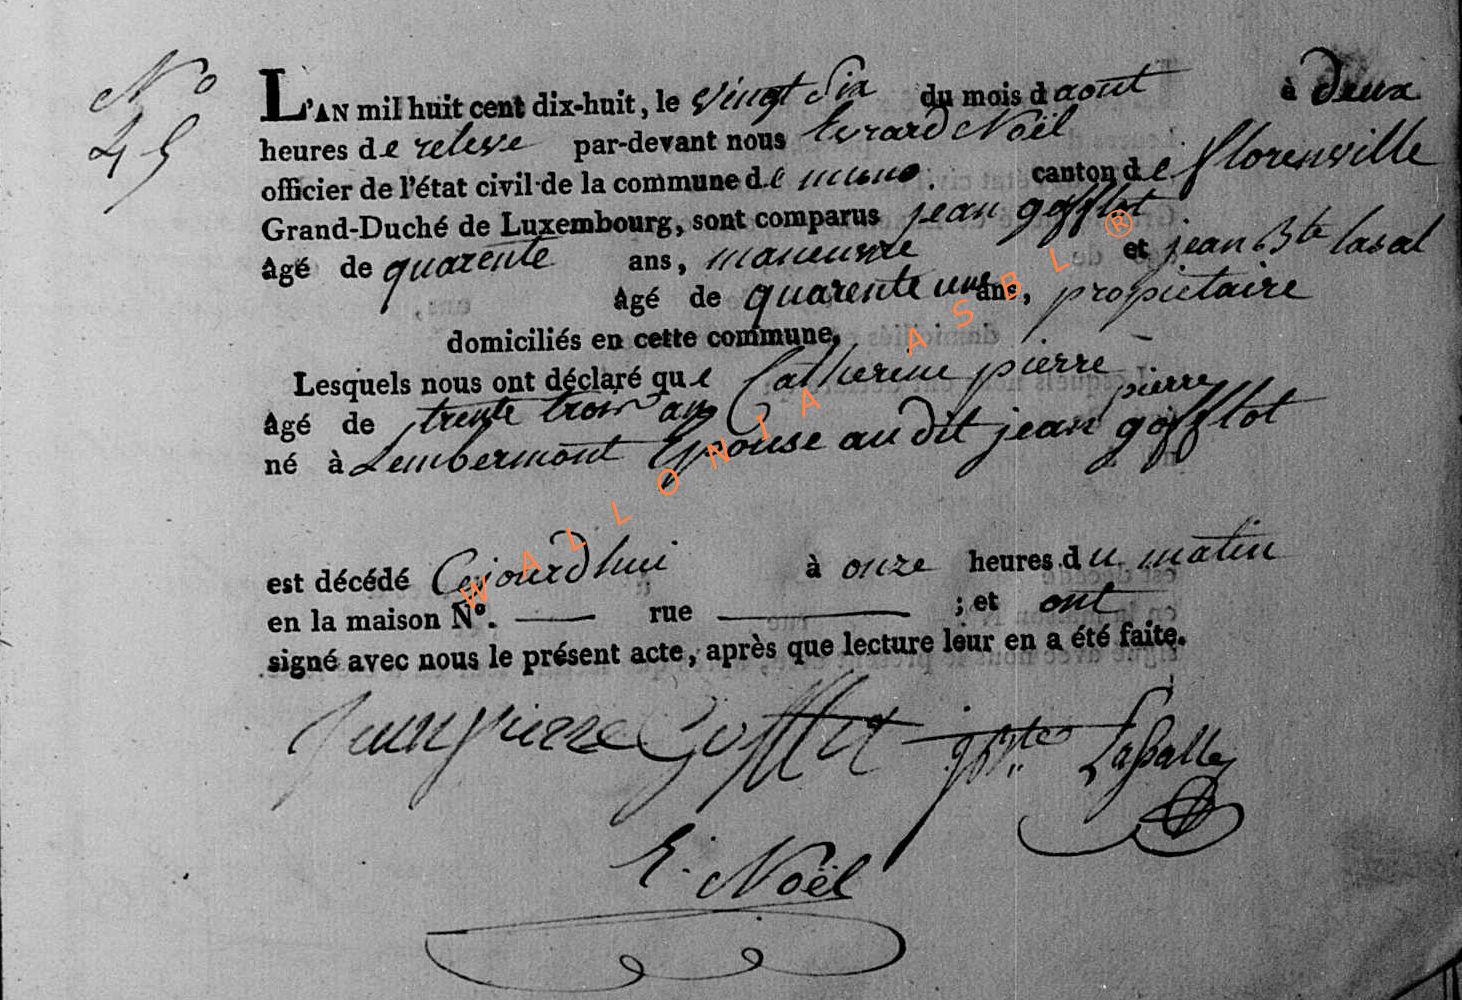 No
45
L'AN mil huit cent dix-huit, le vingt six du mois d aout à deux
heures de releve par-devant nous Evrard Noël
officier de l'état civil de la commune de muno. canton de florenville
Grand-Duché de Luxembourg, sont comparus jean gofflot
âgé de quarente ans, maneuvre et jean Bte lasal
âgé de quarente uns ans, propietaire
domiciliés en cette commune,
Lesquels nous ont déclaré que Catherine pierre
âgé de trente trois ans pierre
né à Lembermont Epouse au dit jean gofflot
est décédé Cejourd hui à onze heures du matin
en la maison N°. — rue — ; et ont
signé avec nous le présent acte, après que lecture leur en a été faite.
Jean pierre Gofflot jBte LaSalle
E. Noël
WALLONIA ASBL ®